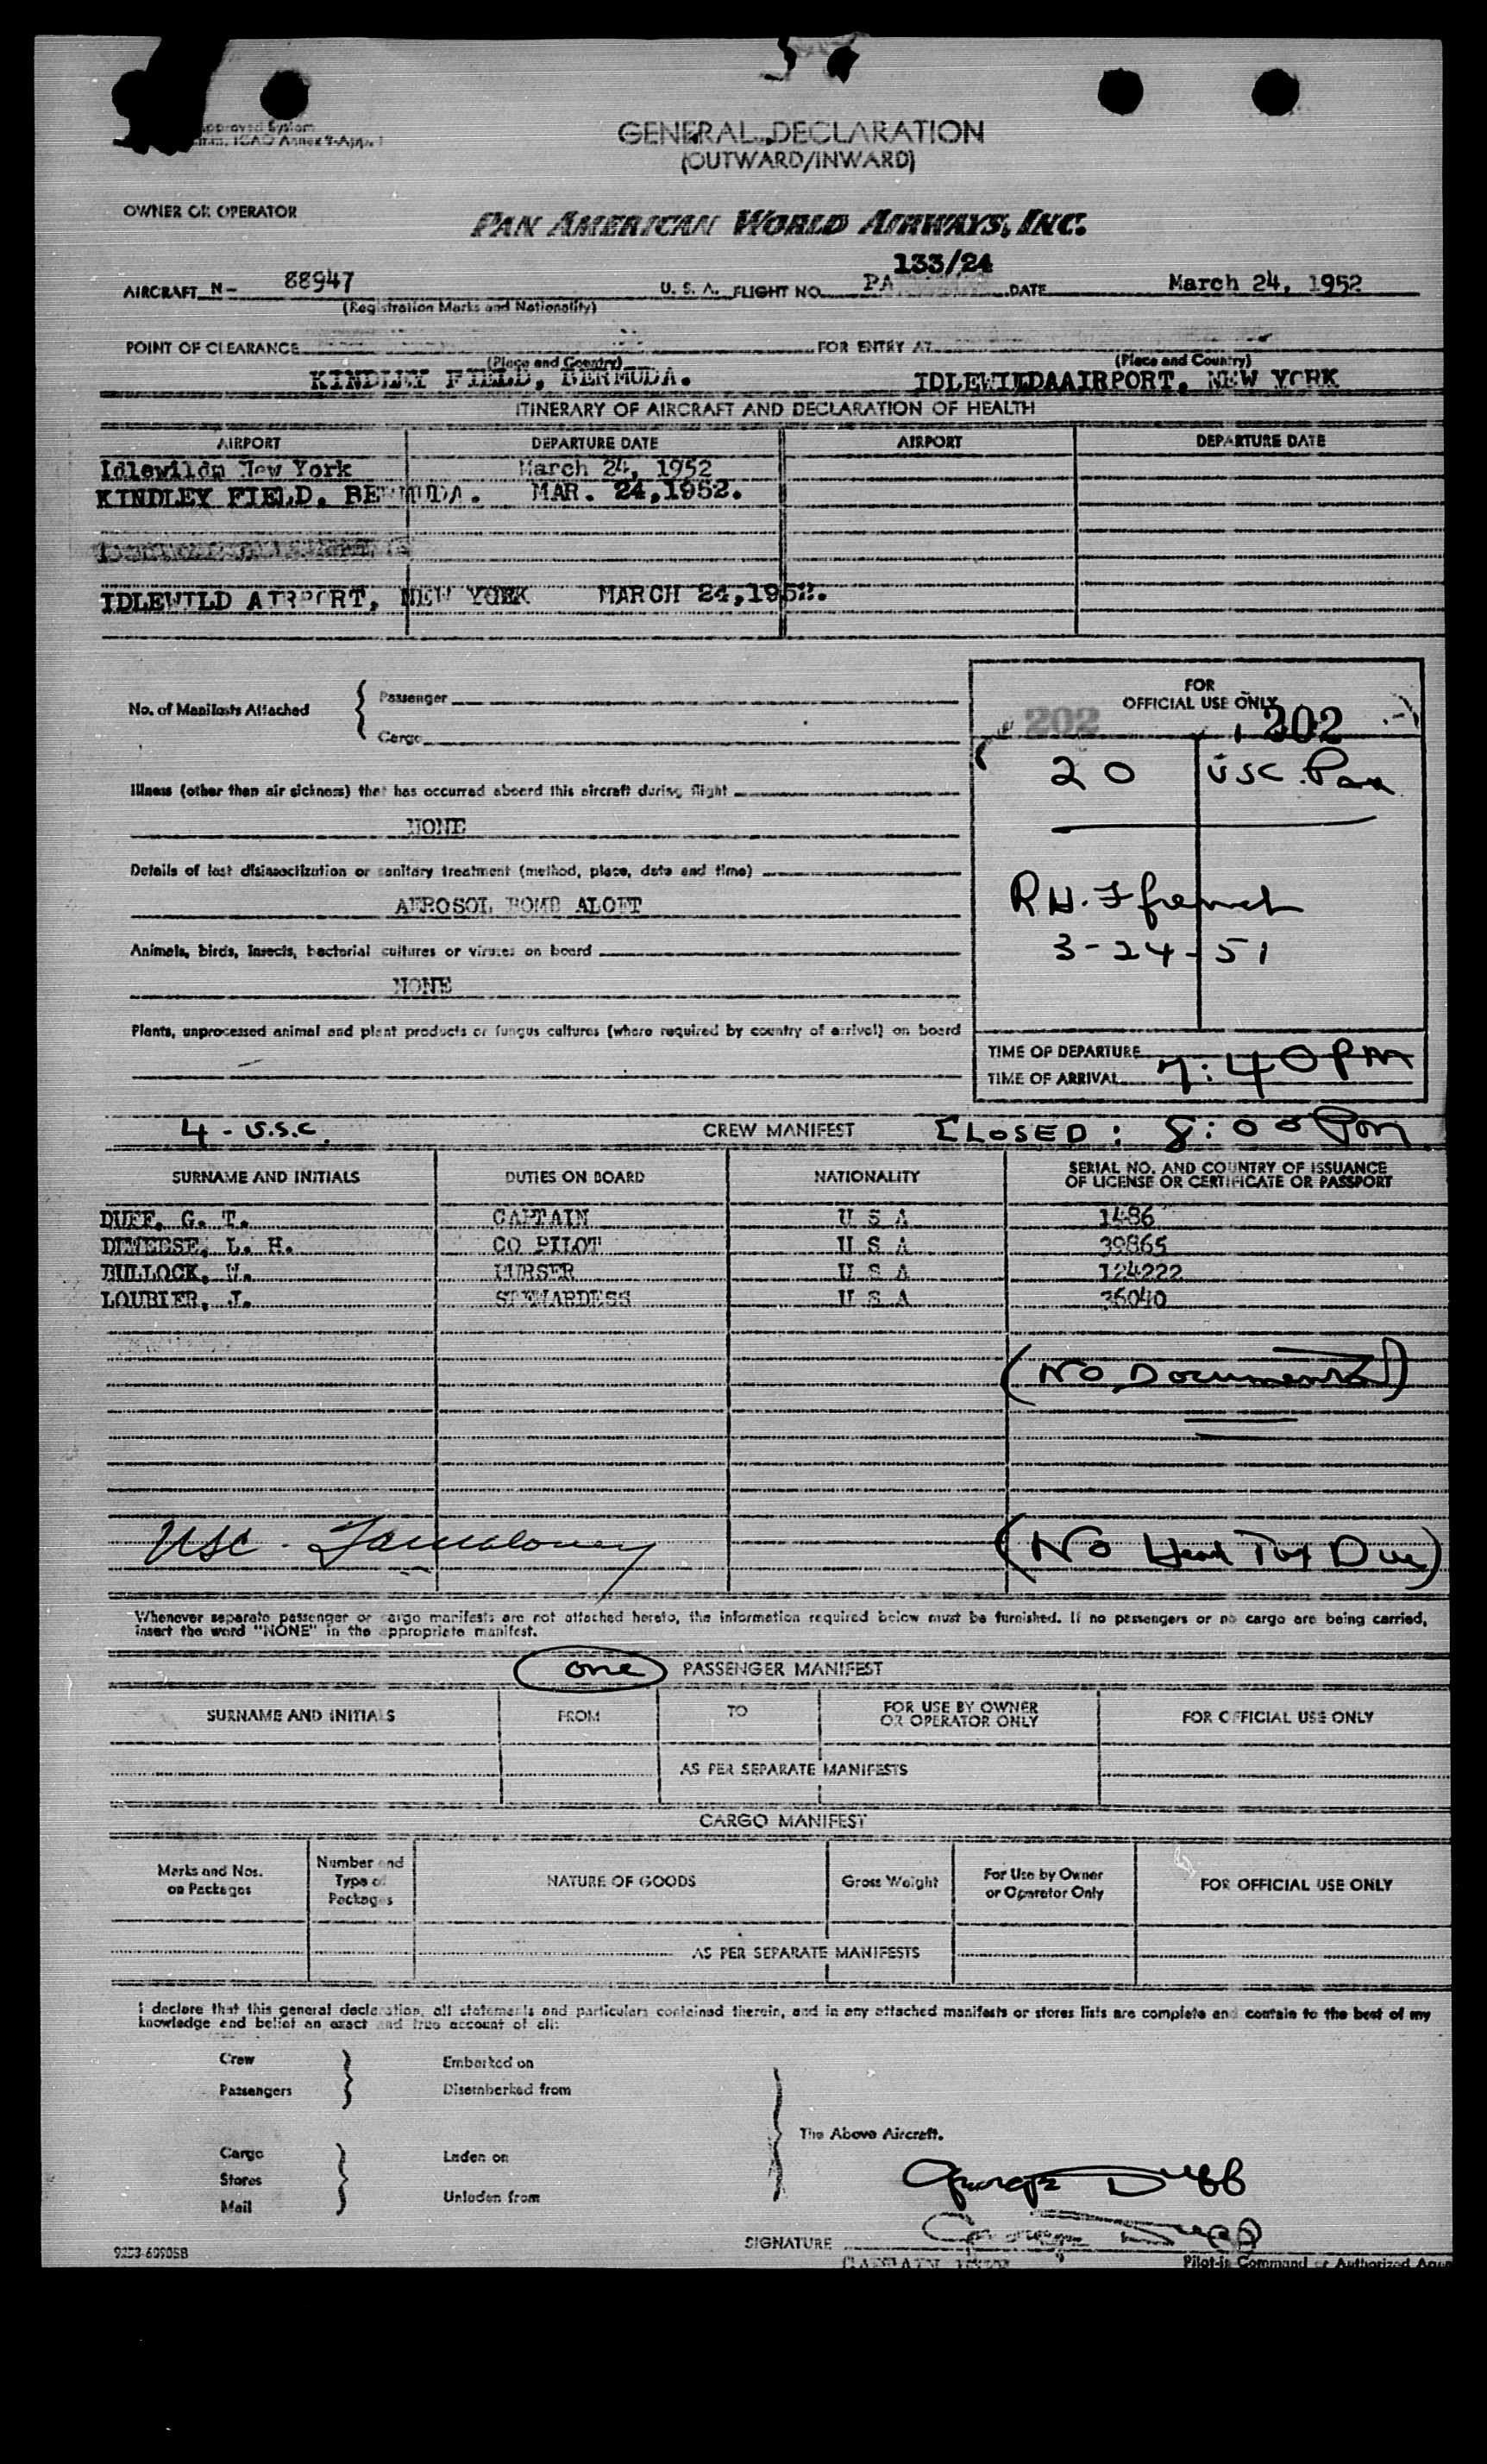 pproved System
ICAO Annex 9-App. 1
GENERAL DECLARATION
(OUTWARD/INWARD)
OWNER OR OPERATOR
PAN AMERICAN WORLD AIRWAYS, INC.
133/24
AIRCRAFT N- 88947 U. S. A. FLIGHT NO. PA DATE March 24, 1952
(Registration Marks and Nationality)
POINT OF CLEARANCE FOR ENTRY AT
(Place and Country) (Place and Country)
KINDLEY FIELD, BERMUDA. IDLEWILDAAIRPORT, NEW YORK
ITINERARY OF AIRCRAFT AND DECLARATION OF HEALTH
AIRPORT DEPARTURE DATE AIRPORT DEPARTURE DATE
Idlewildm New York March 24, 1952
KINDLEY FIELD, BERMUDA. MAR. 24,1952.
IDLEWILD AIRPORT, NEW YORK MARCH 24,1952.
No. of Manifests Attached
Passenger
Cargo
FOR
OFFICIAL USE ONLY
202 202
20 USC. Pax
R.H. Ffrench
3-24-51
Illness (other than air sickness) that has occurred aboard this aircraft during flight
NONE
Details of last disinsectization or sanitary treatment (method, place, date and time)
AEROSOL BOMB ALOFT
Animals, birds, insects, bacterial cultures or viruses on board
NONE
Plants, unprocessed animal and plant products or fungus cultures (where required by country of arrival) on board
TIME OF DEPARTURE
TIME OF ARRIVAL 7:40 PM
4 - U.S.C. CREW MANIFEST CLOSED: 8:00 Pm
SURNAME AND INITIALS DUTIES ON BOARD NATIONALITY SERIAL NO. AND COUNTRY OF ISSUANCE
OF LICENSE OR CERTIFICATE OR PASSPORT
DUFF, G. T. CAPTAIN U S A 1486
DEMEESE, L. H. CO PILOT U S A 39865
BULLOCK, W. PURSER U S A 124222
LOUBIER, J. STEWARDESS U S A 36040
(No Documents)
USC. (No Head Tax Due)
Whenever separate passenger or cargo manifests are not attached hereto, the information required below must be furnished. If no passengers or no cargo are being carried,
insert the word "NONE" in the appropriate manifest.
one PASSENGER MANIFEST
SURNAME AND INITIALS FROM TO FOR USE BY OWNER
OR OPERATOR ONLY FOR OFFICIAL USE ONLY
AS PER SEPARATE MANIFESTS
CARGO MANIFEST
Marks and Nos.
on Packages
Number and
Type of
Packages
NATURE OF GOODS Gross Weight For Use by Owner
or Operator Only FOR OFFICIAL USE ONLY
AS PER SEPARATE MANIFESTS
I declare that this general declaration, all statements and particulars contained therein, and in any attached manifests or stores lists are complete and contain to the best of my
knowledge and belief an exact and true account of all:
Crew Embarked on
Passengers Disembarked from
The Above Aircraft.
Cargo Laden on
Stores
Mail Unladen from
George Duff
SIGNATURE George Duff
CAPTAIN Pilot-in Command or Authorized Agen
9253-6090SB